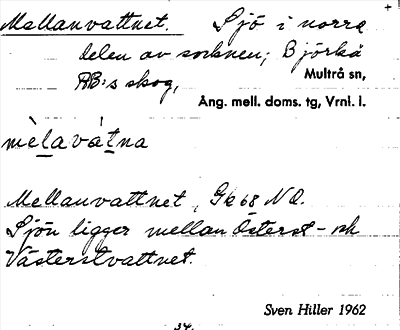 Mellanvattnet. Sjö i norra
delen av socknen; Björkå
AB:s skog,
Multrå sn,
Ång. mell. doms. tg, Vrnl. l.
mèlavátna
Mellanvattnet, Gk 68 NO.
Sjön ligger mellan Österst- och
Västerstvattnet.
Sven Hiller 1962
34.